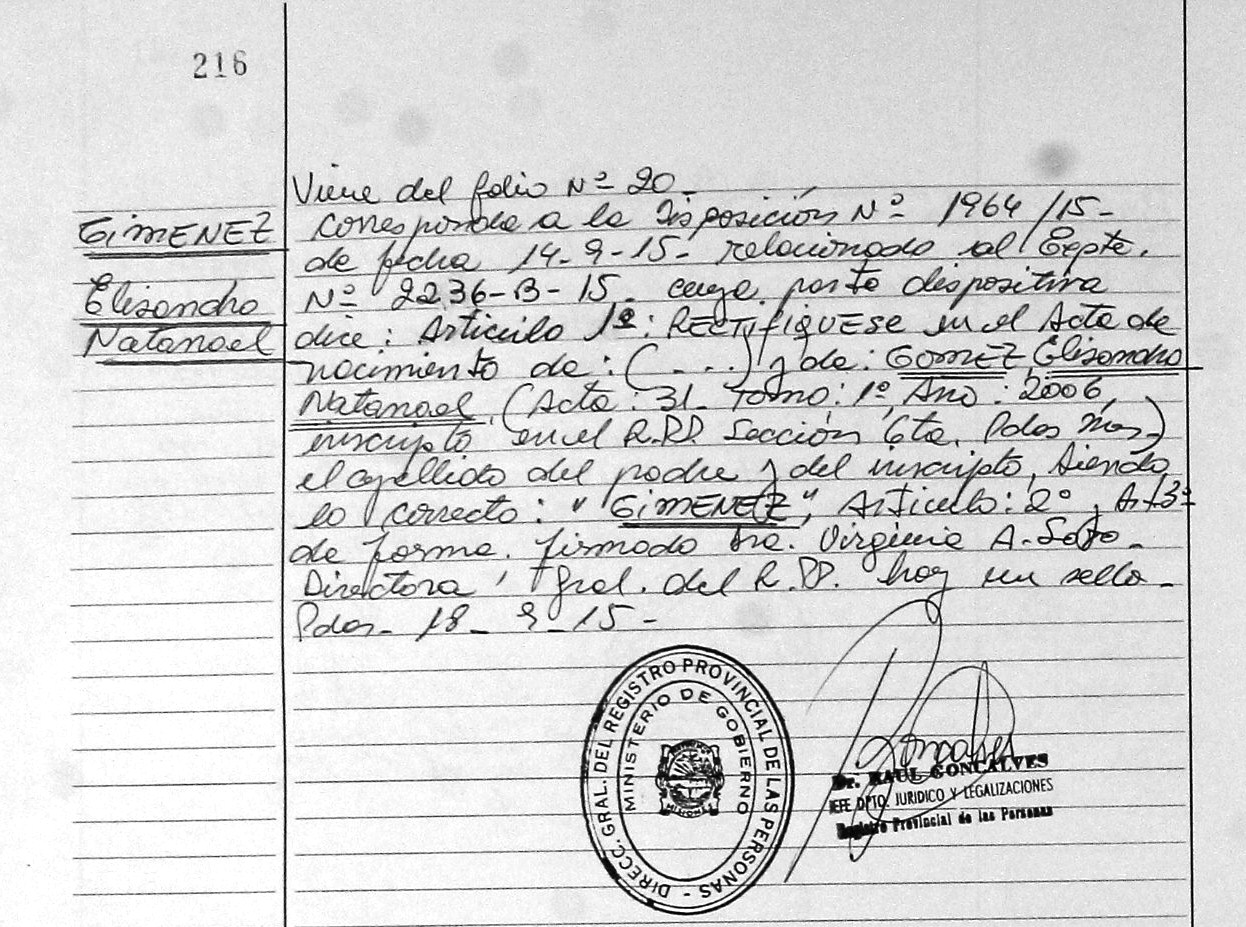 216
Viene del folio Nº 20-
GIMENEZ
Elisandro
Natanael
Corresponde a la Disposición Nº 1964/15-
de fecha 14-9-15- relacionado al Expte.
Nº 2236-B-15- cuya parte dispositiva
dice: Articulo 1º: RECTIFIQUESE en el Acta de
nacimiento de: (....) y de: GOMEZ, Elisandro
Natanael, (Acta: 31- Tomo: 1º, Año: 2006,
inscripto en el R.P.P. Sección 6ta. Pdas Mnes)
el apellido del padre y del inscripto, siendo
lo correcto: "GIMENEZ", Articulo: 2º y Art 3º
de forma. firmado Dra. Virginia A. Soto-
Directora Gral. del R.P.P. hay un sello-
Pdas- 18-9-15-
DIRECC. GRAL. DEL REGISTRO PROVINCIAL DE LAS PERSONAS -
MINISTERIO DE GOBIERNO
MISIONES
Dr. RAUL GONCALVES
JEFE DPTO. JURIDICO Y LEGALIZACIONES
Registro Provincial de las Personas